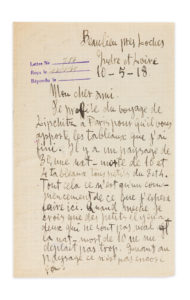 Beaulieu près Loches
Indre et Loire
10-5-18
Lettre No
Reçu le
Répondu le
Mon cher ami
Je profite du voyage de
Lipchitz à Paris pour qu'il vous
apporte les tableaux que j'ai
fini. Il y a un paysage de
nat-morte de 10 et
4 tableaux
Tout cela ce n'est qu'un com-
mencement de ce que j'espère
faire ici. Quand même je
crois que des petits il y en a
deux qui ne sont pas mal et
la nat-morte de 10 ne me
déplait pas trop. Quant au
paysage ce n'est pas encore